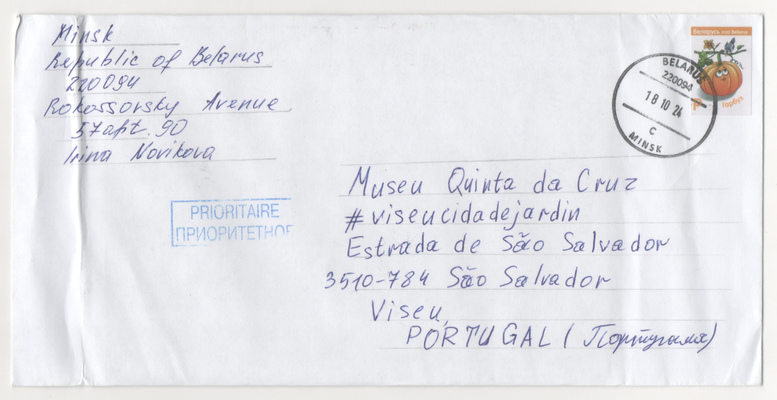 Minsk
Republic of Belarus
220094
Rokossovsky Avenue
57 apt. 90
Irina Novikova
Беларусь
Гарбуз
BELARUS
220094
18 10 24
C
MINSK
PRIORITAIRE
ПРИОРИТЕТНОЕ
Museu Quinta da Cruz
#viseucidadejardin
Estrada de São Salvador
3510-784 São Salvador
Viseu,
PORTUGAL (Португалия)